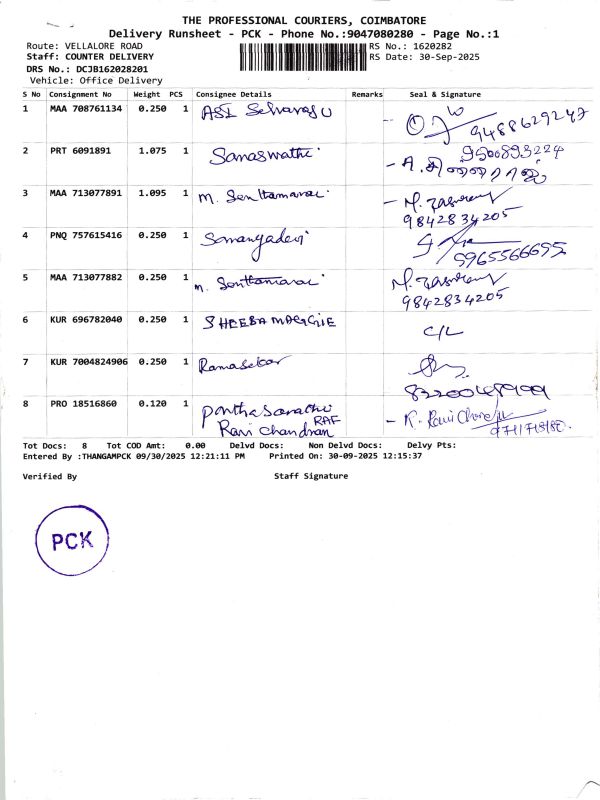 THE PROFESSIONAL COURIERS, COIMBATORE
Delivery Runsheet - PCK - Phone No.:9047080280 - Page No.:1
Route: VELLALORE ROAD RS No.: 1620282
Staff: COUNTER DELIVERY RS Date: 30-Sep-2025
DRS No.: DCJB162028201
Vehicle: Office Delivery
S No Consignment No Weight PCS Consignee Details Remarks Seal & Signature
1 MAA 708761134 0.250 1 ASI Selvaraju
9488629247
2 PRT 6091891 1.075 1 Saraswathi 9500893224
3 MAA 713077891 1.095 1 M. Senthamarai
9842834205
4 PNQ 757615416 0.250 1 
5965566695
5 MAA 713077882 0.250 1 M. Senthamarai
9842834205
6 KUR 696782040 0.250 1 SHEEBA MAGGIE C/L
7 KUR 7004824906 0.250 1 Ramasekar
8 PRO 18516860 0.120 1 Parthasarathi
RAF
Ravi Chandran
Tot Docs: 8 Tot COD Amt: 0.00 Delvd Docs: Non Delvd Docs: Delvy Pts:
Entered By :THANGAMPCK 09/30/2025 12:21:11 PM Printed On: 30-09-2025 12:15:37
Verified By Staff Signature
PCK